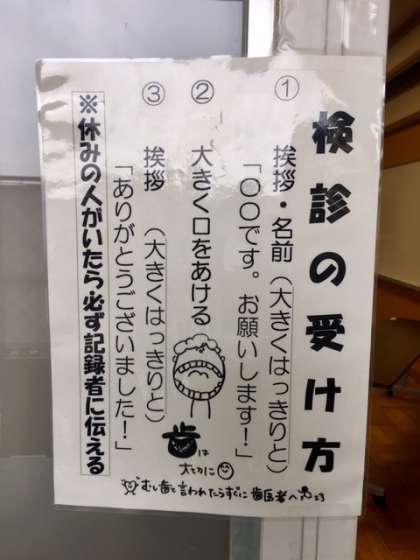 検診の受け方
① 挨拶・名前(大きくはっきりと)
「〇〇です。お願いします!」
② 大きく口をあける
③ 挨拶 (大きくはっきりと)
「ありがとうございました!」
※休みの人がいたら必ず記録者に伝える
歯は
大切に
むし歯と言われたらすぐに歯医者へ